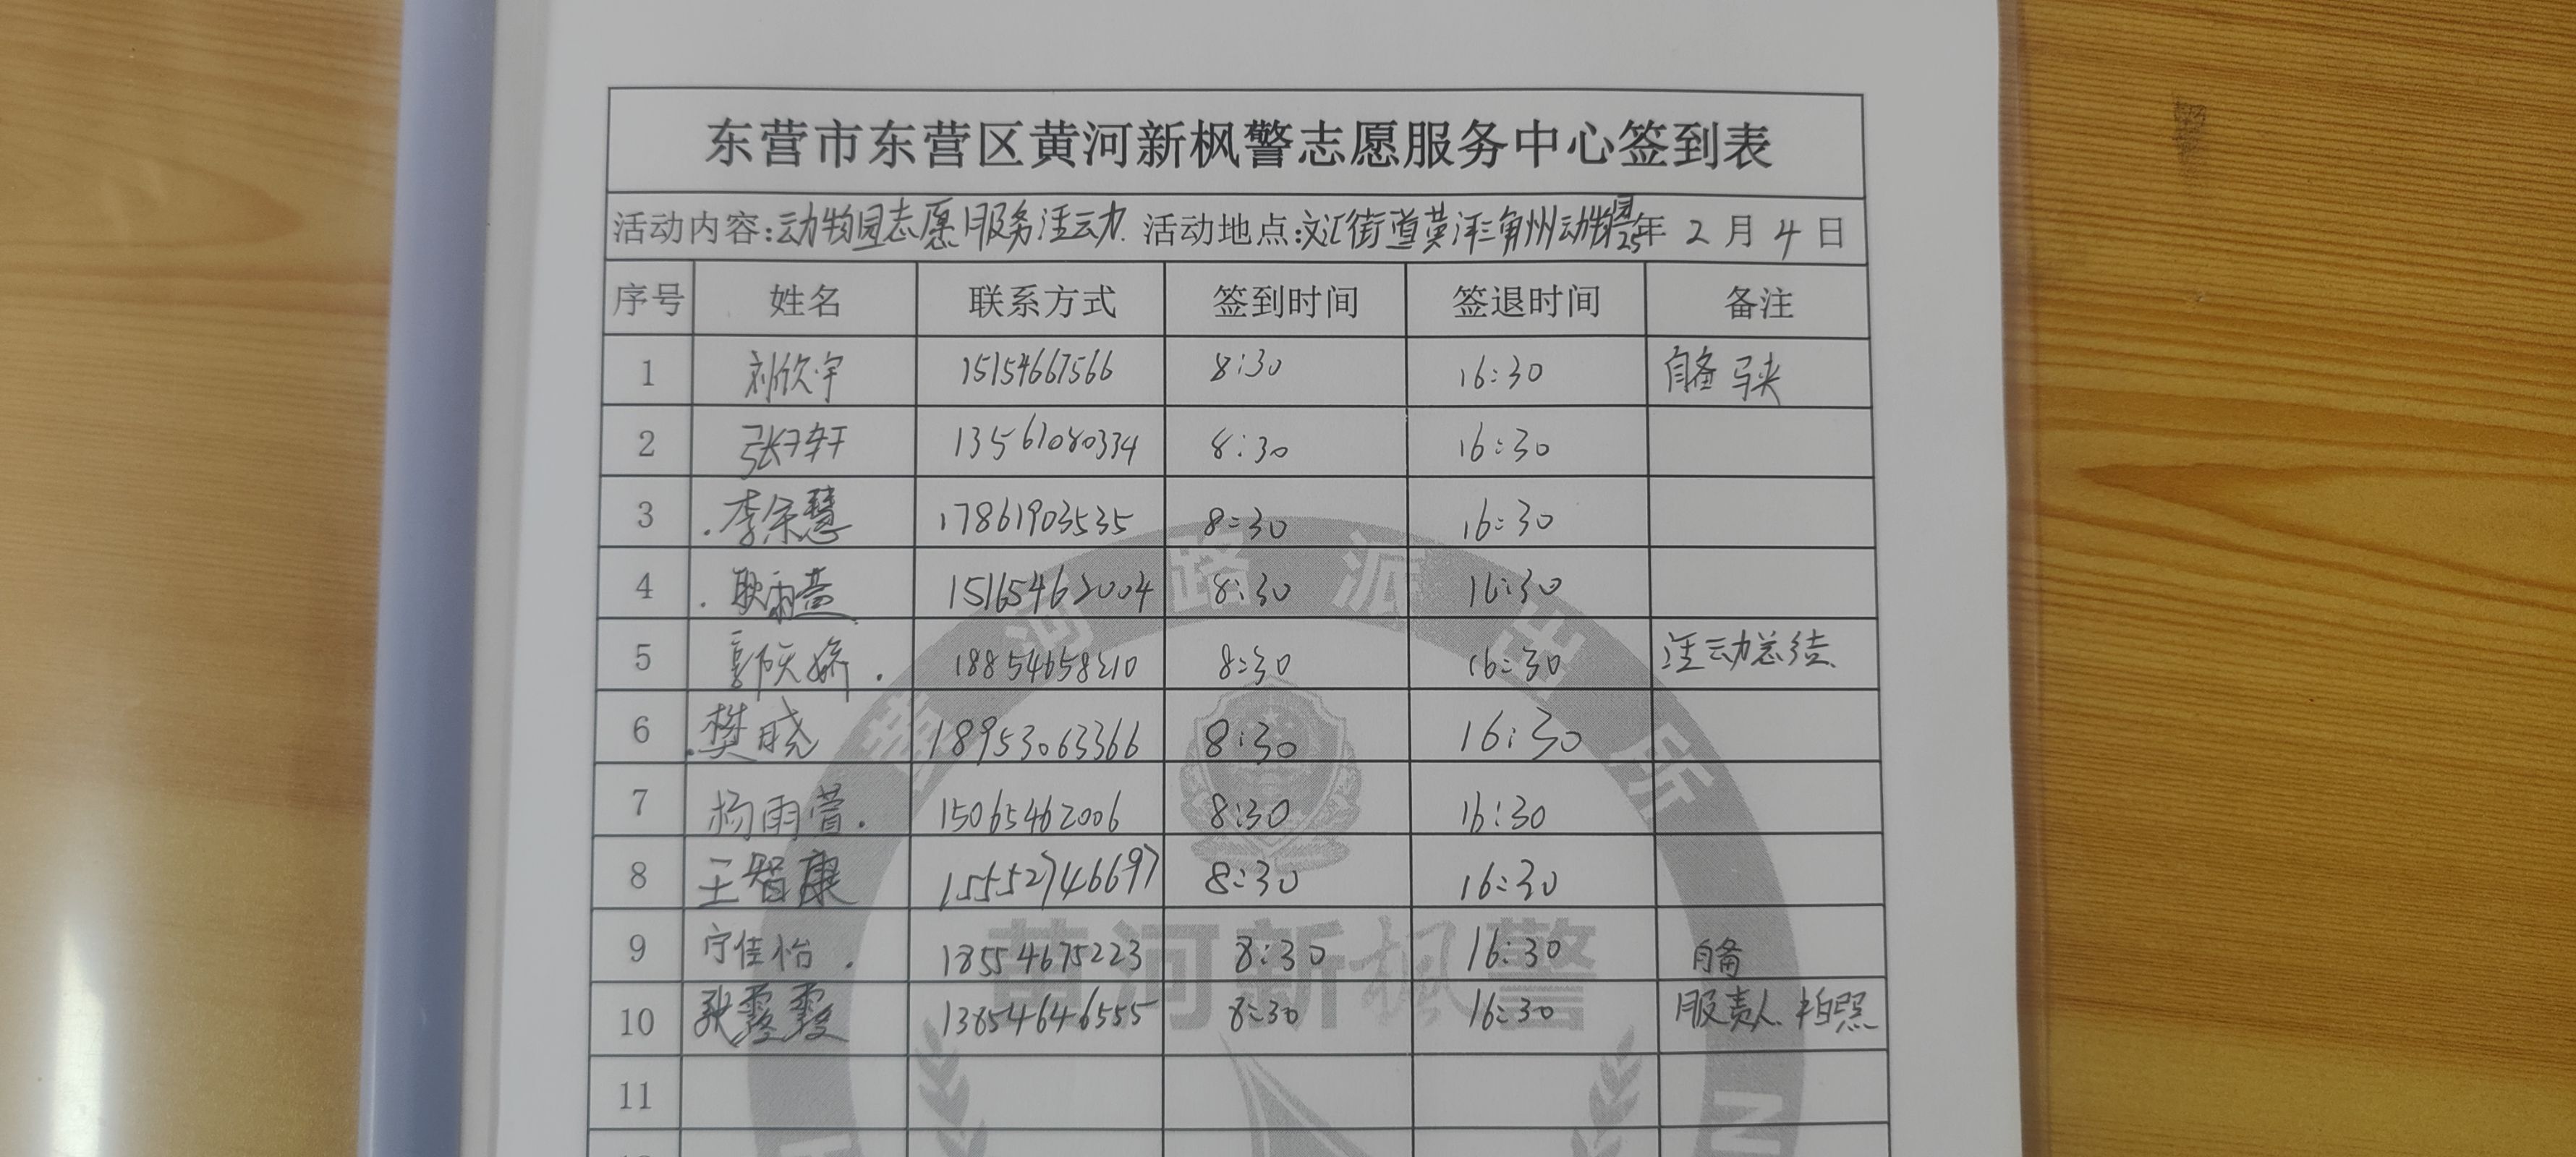 东营市东营区黄河新枫警志愿服务中心签到表
活动内容:动物园志愿服务活动. 活动地点:文汇街道黄河三角州动物园 25年 2月4日
序号 姓名 联系方式 签到时间 签退时间 备注
1 刘欣宇 15154667566 8:30 16:30 自备马夹
2 张轩 13561080334 8:30 16:30
3 李余慧 17861903535 8:30 16:30
4 耿雨萱 15165462004 8:30 16:30
5 郭天娇 18854658210 8:30 16:30 活动总结
6 樊晓 18953063366 8:30 16:30
7 杨雨萱 15065462006 8:30 16:30
8 王智康 15552746697 8:30 16:30
9 宁佳怡 18554675223 8:30 16:30 自备
10 张霞 13854646555 8:30 16:30 服责人 拍照
11
黄河路派出所
黄河新枫警